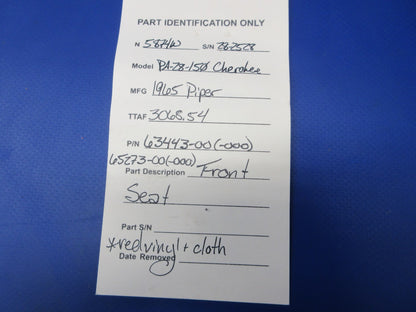 PART IDENTIFICATION ONLY
N 5874W S/N 28-2528
Model PA-28-150 Cherokee
MFG 1965 Piper
TTAF 3068.54
P/N 63443-00(-000)
65273-00(-000)
Part Description Front
Seat
Part S/N
*red vinyl + cloth
Date Removed